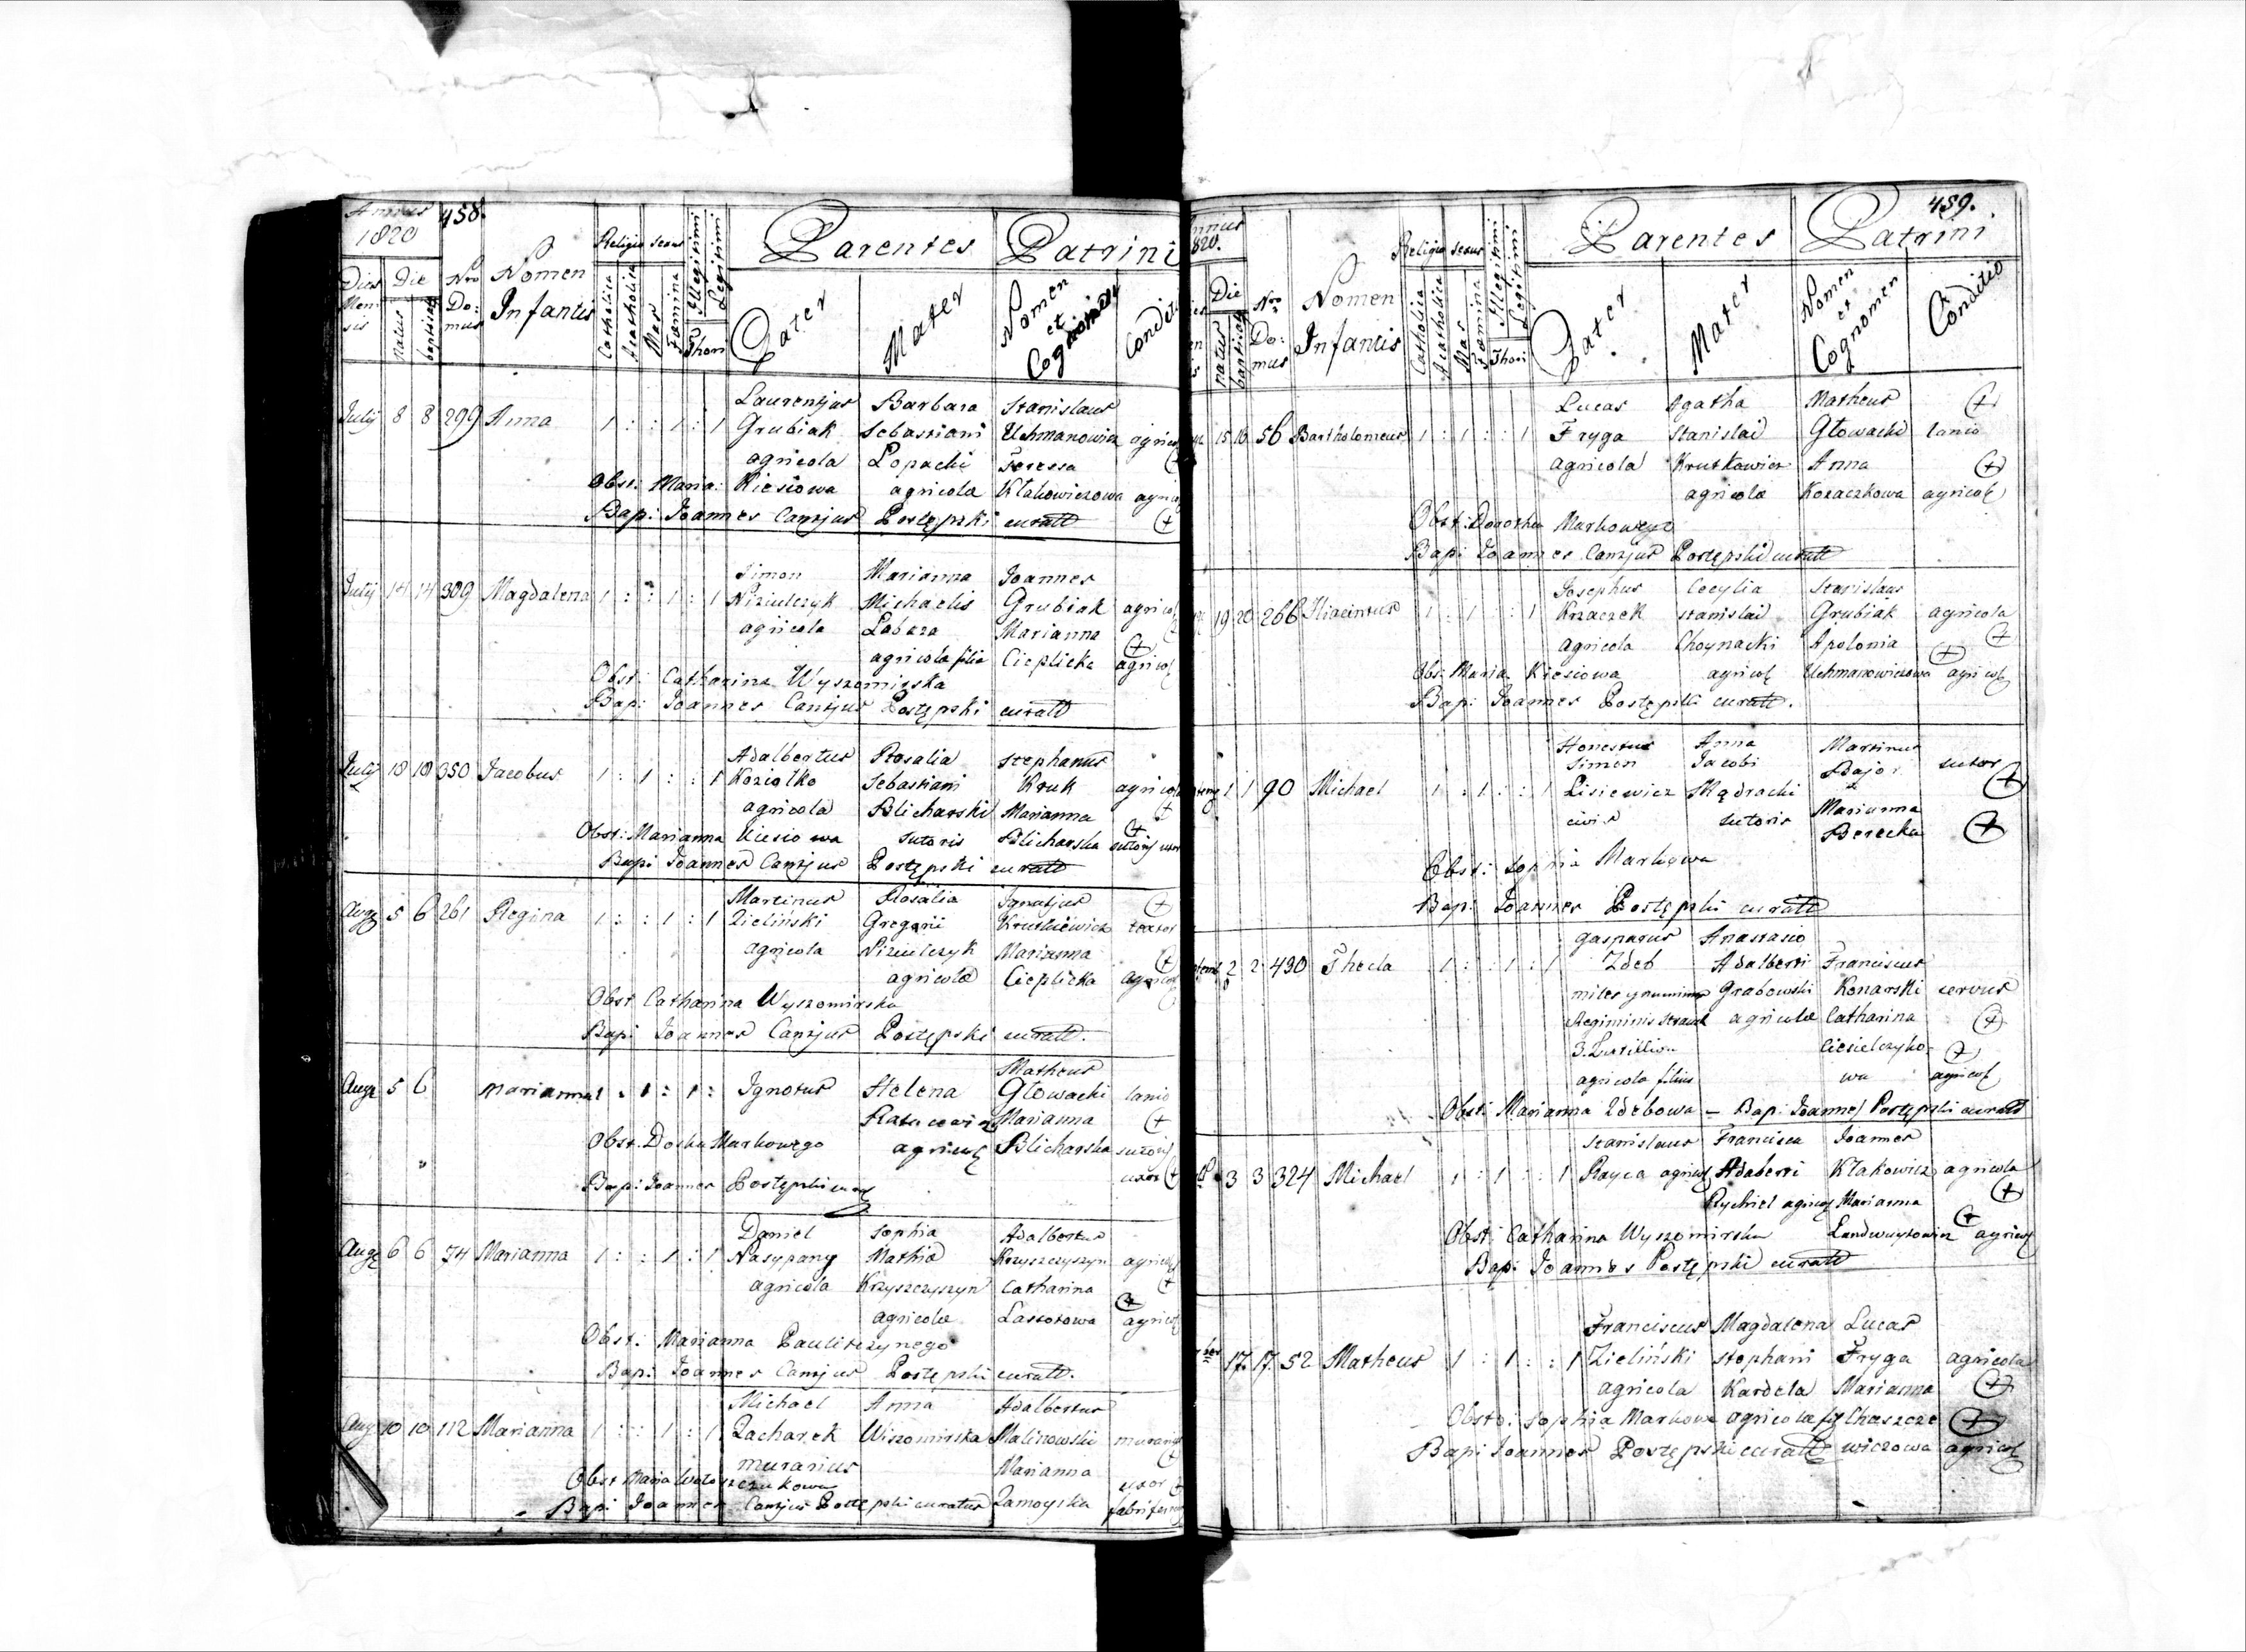 Annus 1820
458.
Dies Mensis
Die
natus
baptisat
Nro Domus
Nomen Infantis
Religio
Catholica
Acatholica
sexus
Mas
Fæmina
Illegitimi
Legitimi
Thori
Parentes
Pater
Mater
Patrini
Nomen et Cognomen
Conditio
Laurentjus Barbara Stanislaus
July 8 8 299 Anna 1 : : 1 : 1 Grubiak Sebastiani Uchmanowicz agricol
agricola Łopacki Teressa
Obst: Maria: Kiesiowa agricola Kłakowiczowa agricol
Bap: Joannes Cantjus Postępski curatt
Simon Marianna Joannes
July 14 14 309 Magdalena 1 : : 1 : 1 Niziulczyk Michaelis Grubiak agricol
agricola Labaza Marianna
agricola filia Cieplicka agricol
Obst: Catharina Wyszomirska
Bap: Joannes Cantjus Postępski curatt
Adalbertus Rosalia Stephanus
July 18 18 350 Jacobus 1 : 1 : : 1 Koziołko Sebastiani Kruk agricola
agricola Blicharski Marianna
Obst: Marianna Kiesiowa sutoris Blicharska sutoris uxor
Bap: Joannes Cantjus Postępski curatt
Martinus Rosalia Ignatjus
Aug 5 6 261 Regina 1 : : 1 : 1 Zieliński Gregorii Krutkiewicz textor
agricola Niziulczyk Marianna
agricolæ Cieplicka agricol
Obst Catharina Wyszomirska
Bap: Joannes Cantjus Postępski curatt.
Matheus
Aug 5 6 Marianna 1 : 1 : 1 : Ignotus Helena Głowacki lanio
Marianna
Obst. Doska Markowego agricol Blicharska sutoris
Bap: Joannes Postępski curat uxor
Daniel Sophia Adalbertus
Aug 6 6 74 Marianna 1 : : 1 : 1 Nasypany Mathiæ Krzyszczyszyn agricol
agricola Krzyszczyszyn Catharina
agricolæ Lassotowa agricol
Obst: Marianna Pauliszynego
Bap: Joannes Cantjus Postępski curatt.
Michael Anna Adalbertus
Aug 10 10 112 Marianna 1 : : 1 : 1 Zacharek Wiszomirska Malinowski
murarius Marianna
Obst Maria Wołoszczukowa uxor
Bap: Joannes Cantjus Postępski curatus Zamoyska
459.
Annus 1820.
Die
natus
baptisat
Nro Domus
Nomen Infantis
Religio
Catholica
Acatholica
sexus
Mas
Fæmina
Illegitimi
Legitimi
Thori
Parentes
Pater
Mater
Patrini
Nomen et Cognomen
Conditio
Lucas Agatha Matheus
15 16 56 Bartholomeus 1 : 1 : : 1 Fryga Stanislai Głowacki lanio
agricola Krutkowicz Anna
agricolæ Kozaczkowa agricol
Obst: Dorothea Markowego
Bap: Joannes Cantjus Postępski curatt
Josephus Cecylia Stanislaus
19 20 266 Hiacintus 1 : 1 : : 1 Krzaczek Stanislai Grubiak agricola
agricola Choynacki Apolonia
Obs: Maria Kiesiowa agricol Uchmanowiczowa agricol
Bap: Joannes Postępski curatt.
Honestus Anna Martinus
Simon Jacobi Bajor sutor
1 1 90 Michael 1 : 1 : : 1 Lisiewicz Mądracki
civis sutoris Marianna
Berecka
Obst: Sophia Markowa
Bap: Joannes Postępski curatt
Gasparus Anastasia
2 2 430 Thecla 1 : : 1 : 1 Zdeb Adalberti Franciscus
miles Grabowski Konarski servus
Regiminis agricolæ Catharina
3. Ciesielczyko-
agricola filius wa agricol
Obst: Marianna Zdebowa – Bap: Joannes Postępski curatt
Stanislaus Francisca Joannes
3 3 324 Michael 1 : 1 : : 1 Rayca agricol Adalberti Kłakowicz agricola
Rychiel agricol Marianna
Obst: Catharina Wyszomirska agricol
Bap: Joannes Postępski curatt
Franciscus Magdalena Lucas
17 17 52 Matheus 1 : 1 : : 1 Zieliński Stephani Fryga agricola
agricola Kardela Marianna
Obsto: Sophia Markowa agricolæ Chaszcze
Bap: Joannes Postępski curatt wiczowa agricol